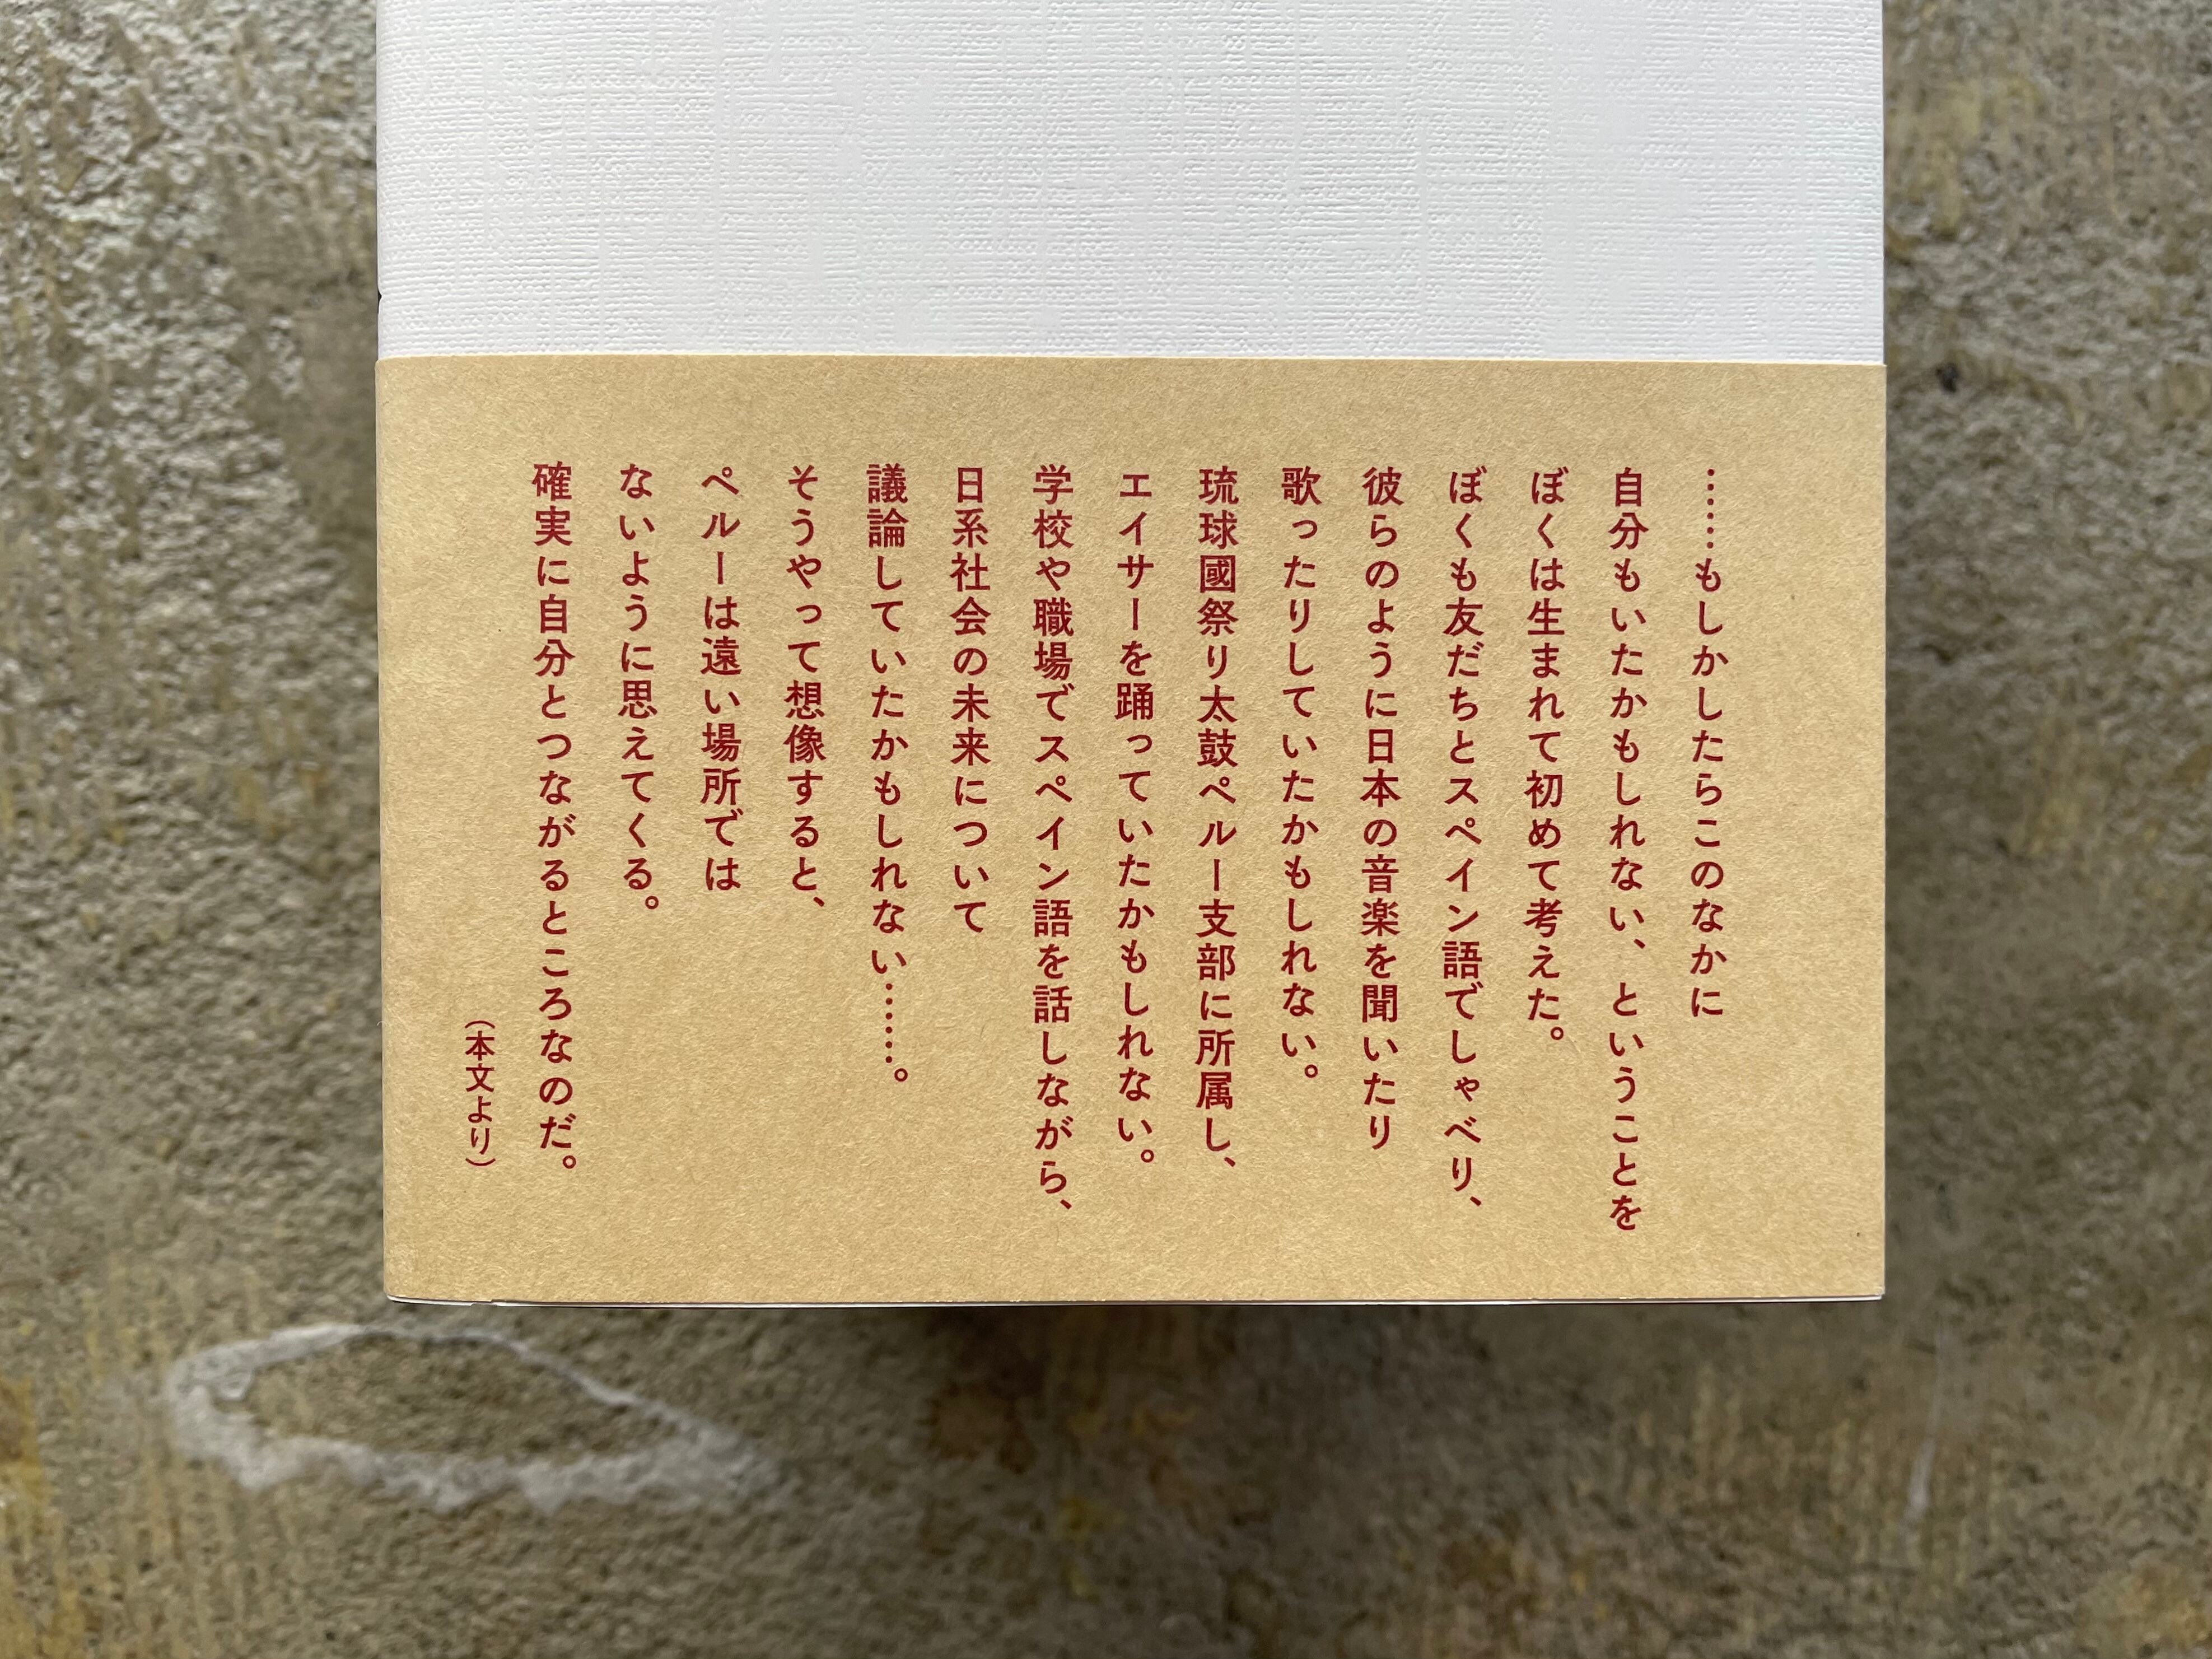 ……もしかしたらこのなかに
自分もいたかもしれない、ということを
ぼくは生まれて初めて考えた。
ぼくも友だちとスペイン語でしゃべり、
彼らのように日本の音楽を聞いたり
歌ったりしていたかもしれない。
琉球國祭り太鼓ペルー支部に所属し、
エイサーを踊っていたかもしれない。
学校や職場でスペイン語を話しながら、
日系社会の未来について
議論していたかもしれない……。
そうやって想像すると、
ペルーは遠い場所では
ないように思えてくる。
確実に自分とつながるところなのだ。
（本文より）